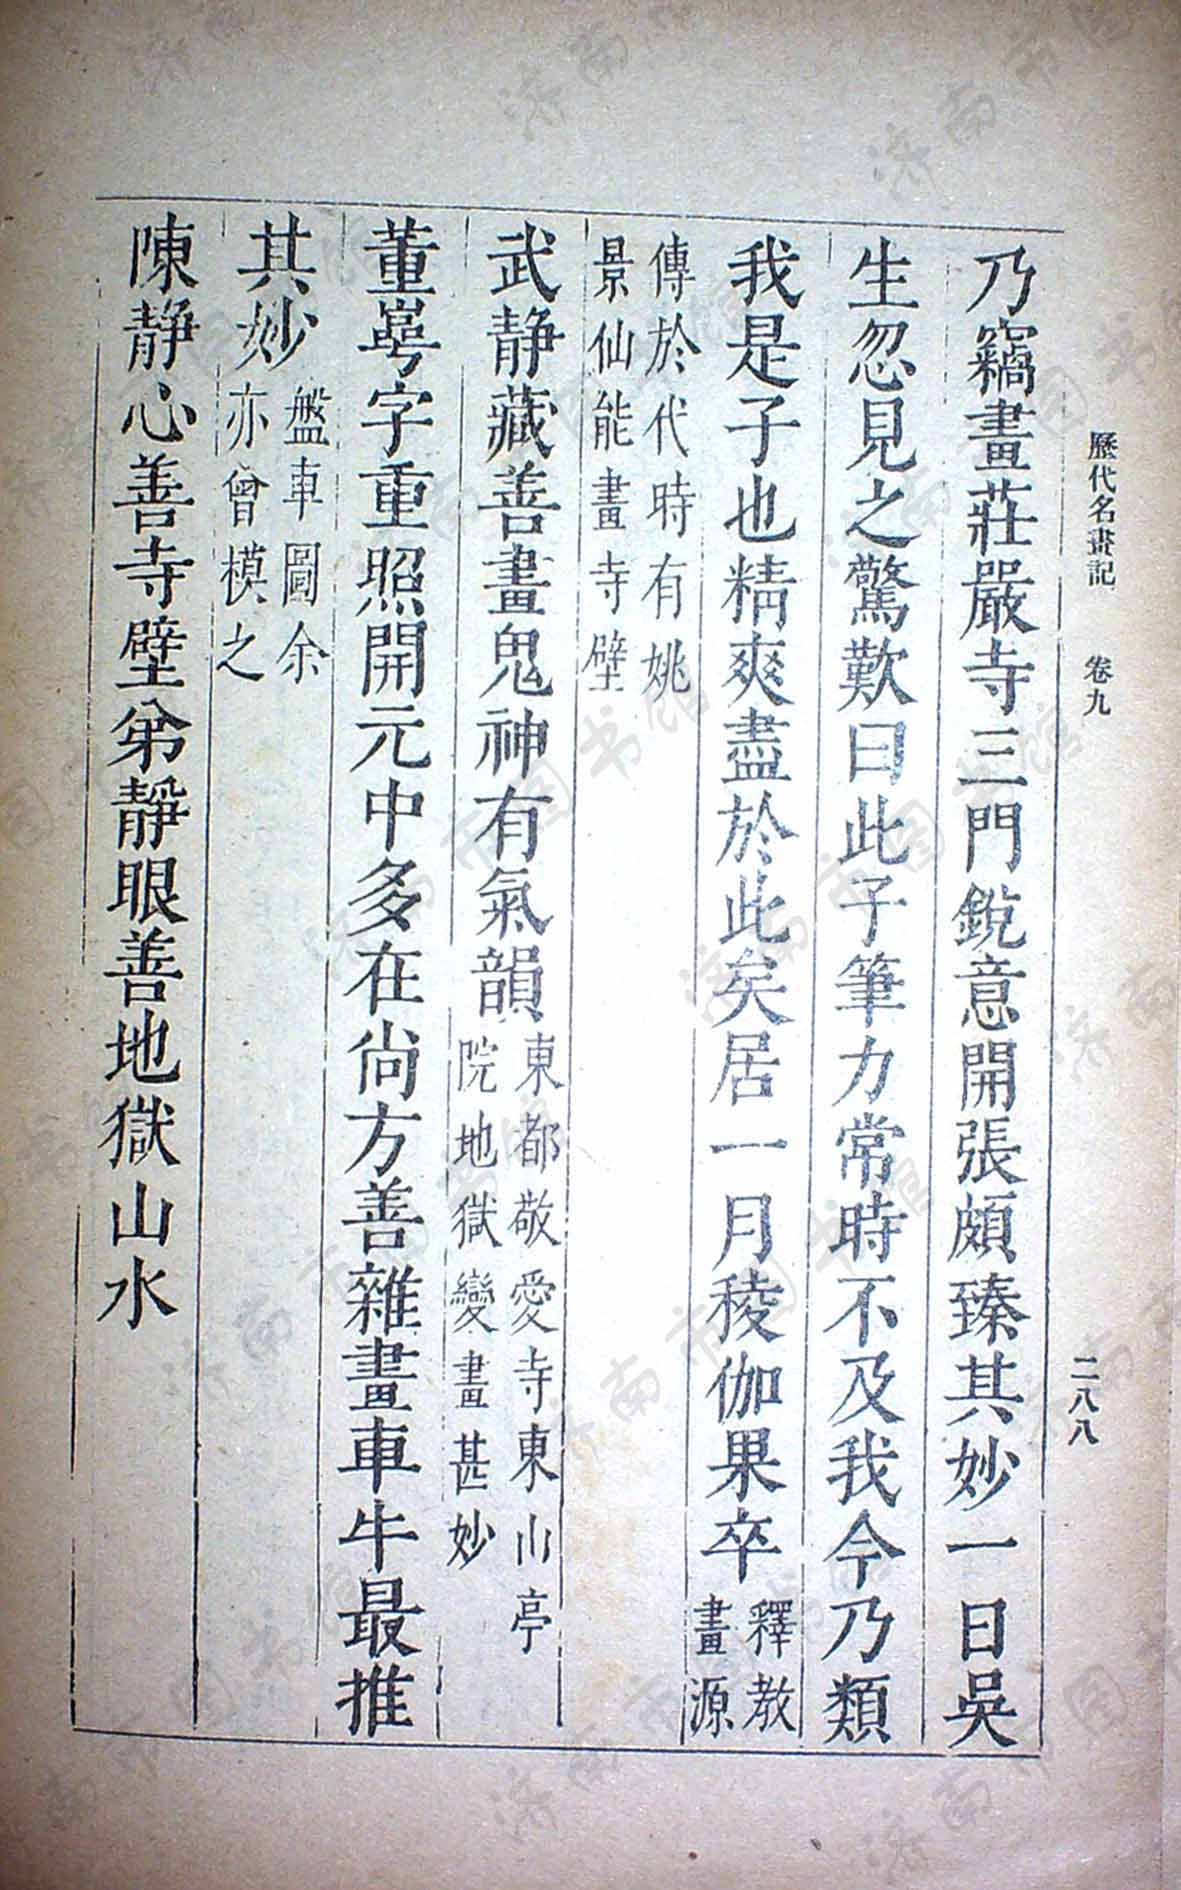 歷代名畫記 卷九 二八八
乃竊畫莊嚴寺三門銳意開張頗臻其妙一日吳
生忽見之驚歎曰此子筆力常時不及我今乃類
我是子也精爽盡於此矣居一月稜伽果卒
釋教
畫源
傳於代時有姚
景仙能畫寺壁
武靜藏善畫鬼神有氣韻
東都敬愛寺東山亭
院地獄變畫甚妙
董字重照開元中多在尚方善雜畫車牛最推
其妙
盤車圖余
亦曾模之
陳靜心善寺壁弟靜眼善地獄山水
济南市图书馆